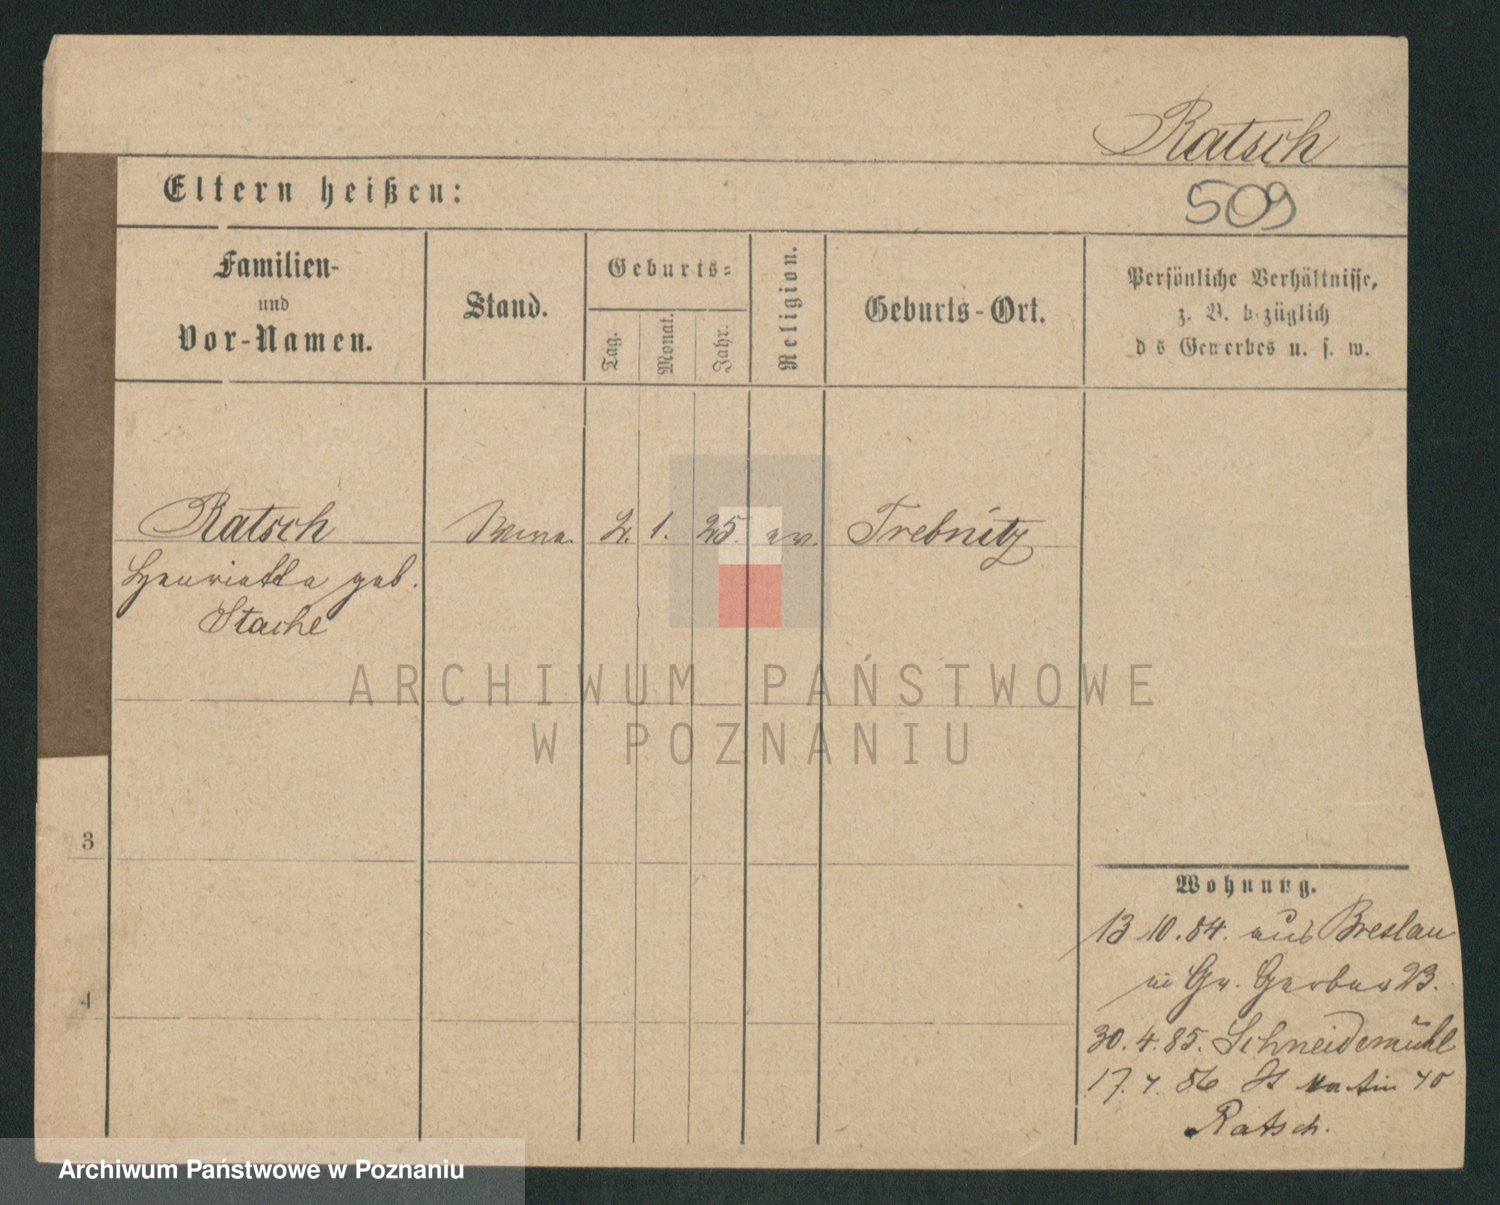 Ratsch
Eltern heißen:
509
Familien-
und
Vor-Namen.
Stand.
Geburts=
Tag.
Monat.
Jahr.
Religion.
Geburts-Ort.
Persönliche Verhältnisse,
z. B. bezüglich
des Gewerbes u. s. w.
Ratsch Wwe. 2. 1. 25. ev. Trebnitz
Henriette geb.
Stache
ARCHIWUM PAŃSTWOWE
W POZNANIU
3
4
Wohnung.
13 10. 84. aus Breslau
in Gr. Gerber 23.
30. 4. 85. Schneidemühl
17. 7. 86 St Martin 70
Ratsch.
Archiwum Państwowe w Poznaniu